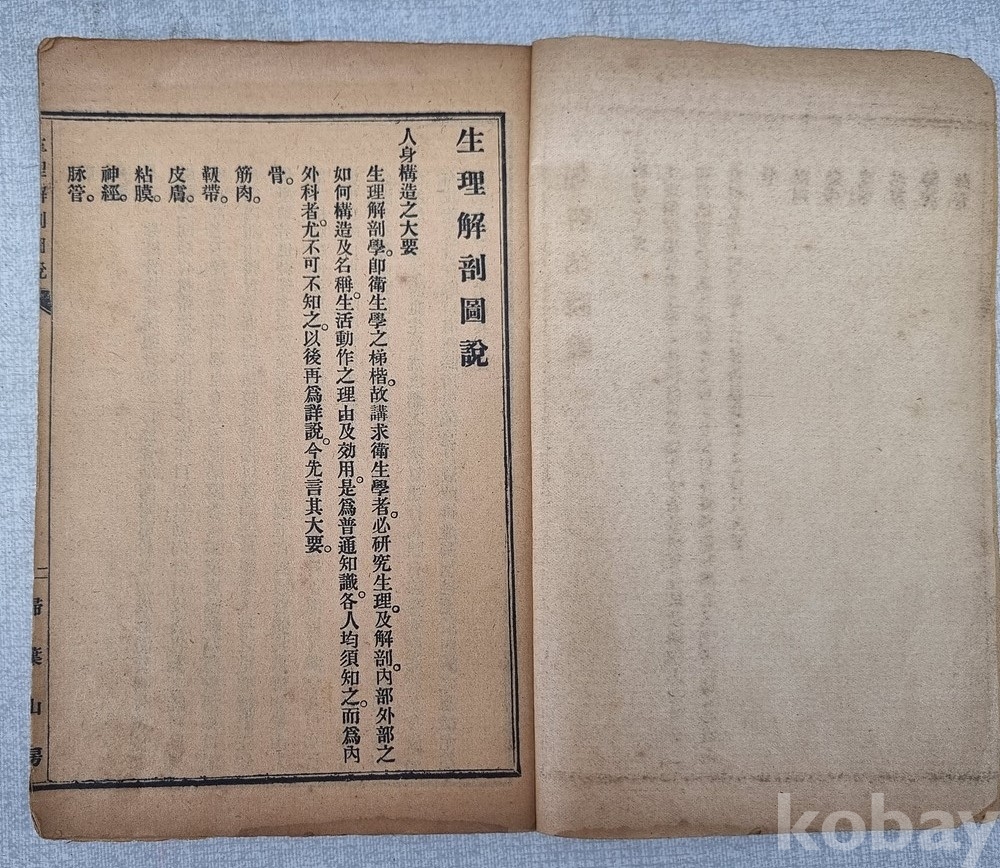 生理解剖圖說
人身構造之大要
生理解剖學。卽衛生學之梯楷。故講求衛生學者。必研究生理。及解剖。內部外部之
如何構造及名稱。生活動作之理由及効用。是爲普通知識。各人均須知之。而爲內
外科者。尤不可不知之。以後再爲詳說。今先言其大要。
骨。
筋肉。
靱帶。
皮膚。
粘膜。
神經。
脉管。
生理解剖圖說
一
掃葉山房
kobay